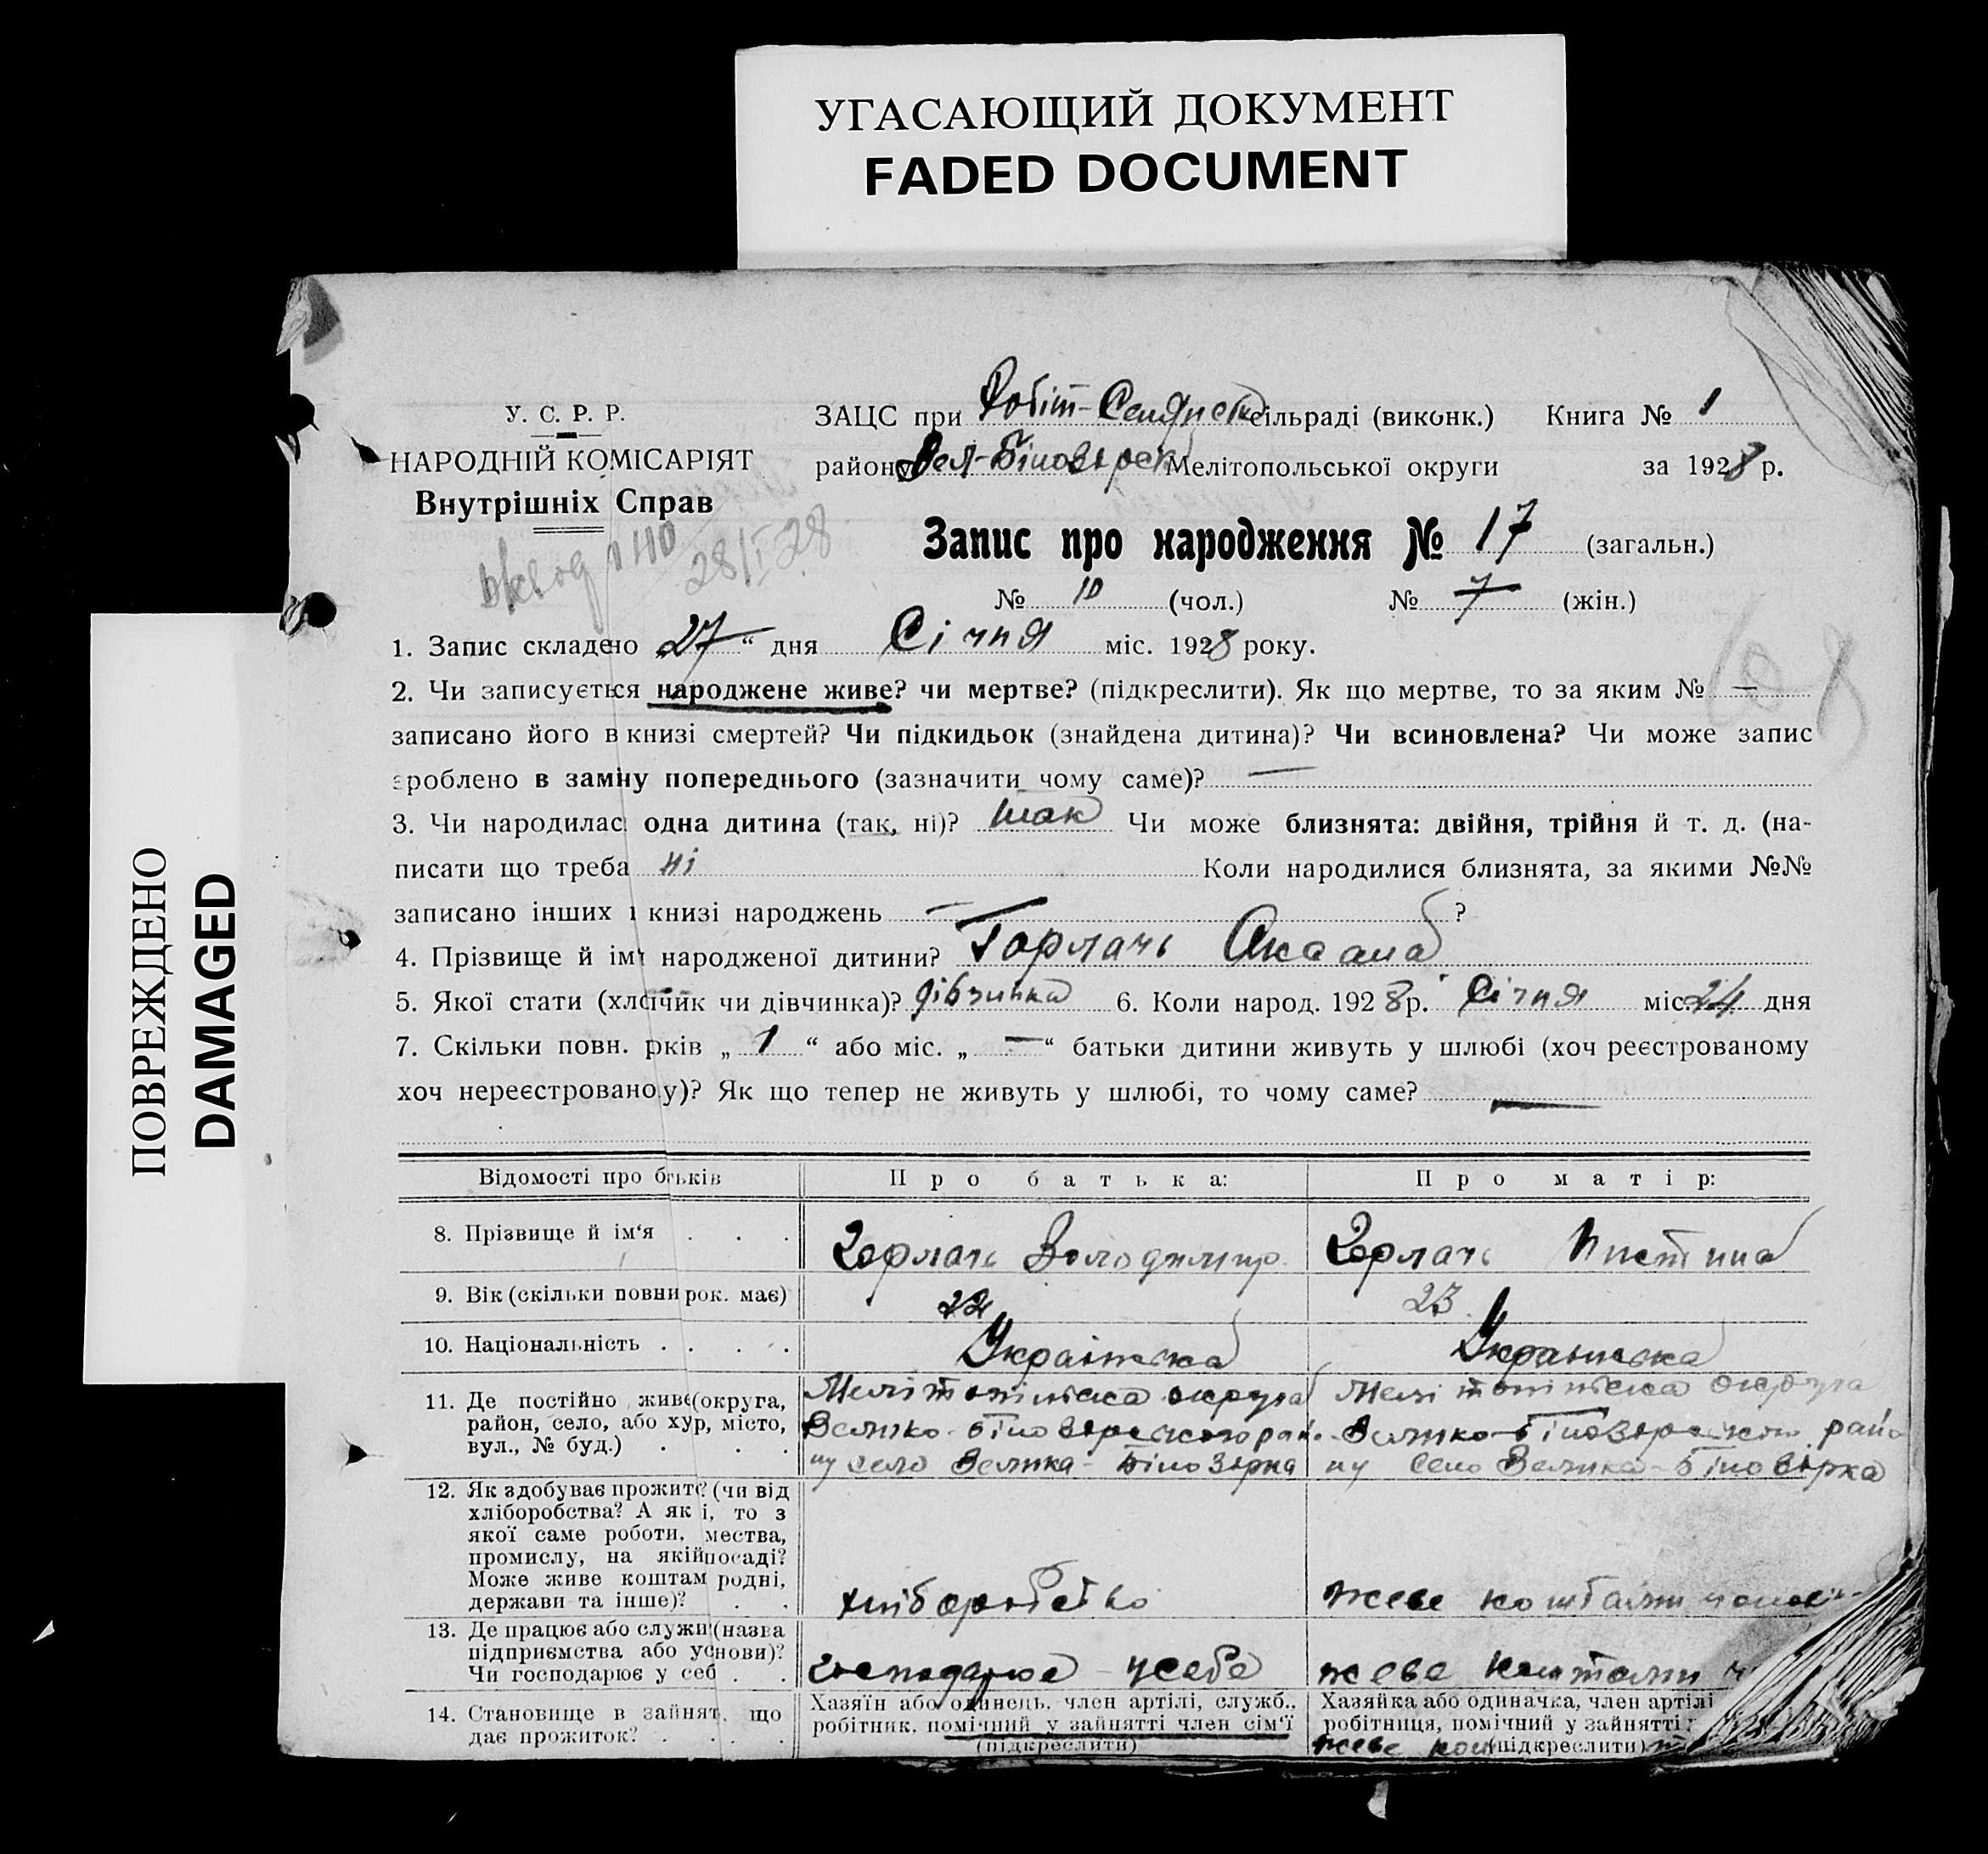 УГАСАЮЩИЙ ДОКУМЕНТ
FADED DOCUMENT
ПОВРЕЖДЕНО
DAMAGED
У. С. Р. Р.
НАРОДНІЙ КОМІСАРІЯТ
Внутрішніх Справ
28/I 28
ЗАЦС при Робіт- сільраді (виконк.) Книга № 1
району Вел-Білозірськ Мелітопольської округи за 1928 р.
Запис про народження № 17 (загальн.)
№ 10 (чол.) № 7 (жін.)
1. Запис складено „27“ дня Січня міс. 1928 року.
68
2. Чи записується народжене живе? чи мертве? (підкреслити). Як що мертве, то за яким № —
записано його в книзі смертей? Чи підкидьок (знайдена дитина)? Чи всиновлена? Чи може запис
зроблено в заміну попереднього (зазначити чому саме)? —
3. Чи народилас одна дитина (так, ні)? так Чи може близнята: двійня, трійня й т. д. (на-
писати що треба ні Коли народилися близнята, за якими №№
записано інших в книзі народжень — ?
4. Прізвище й ім'я народженої дитини? Горлачь Оксана
5. Якої стати (хлопчик чи дівчинка)? дівчинка 6. Коли народ. 1928 р. Січня міс. 24 дня
7. Скільки повн. років „1“ або міс. „—“ батьки дитини живуть у шлюбі (хоч реєстрованому
хоч нереєстрованому)? Як що тепер не живуть у шлюбі, то чому саме? —
Відомості про батьків Про батька: Про матір:
8. Прізвище й ім'я . . . Горлачь Володимир Горлачь Христина
9. Вік (скільки повни рок. має) 22 23
10. Національність . . . . Українська Українська
11. Де постійно живе (округа,
район, село, або хур, місто,
вул., № буд.) . . .
Мелітопільска округа
Велико-Білозірського рай-
ну село Велика-Білозірка
Мелітопільска округа
Велико-Білозірського райо
ну село Велика-Білозірка
12. Як здобуває прожиток? (чи від
хліборобства? А як ні, то з
якої саме роботи, ремества,
промислу, на якій посаді?
Може живе коштам родні,
держави та інше)? . .
хліборобство
жеве коштами
13. Де працює або служи (назва
підприємства або установи)?
Чи господарює у себе . .
господарює у себе
жеве коштами
14. Становище в занят. що
дає прожиток? . . . .
Хазяїн або одинець, член артілі, служб.,
робітник, помічний у зайнятті член сім'ї
(підкреслити)
Хазяйка або одиначка, член артілі
робітниця, помічний у зайнятті
жеве кош (підкреслити)